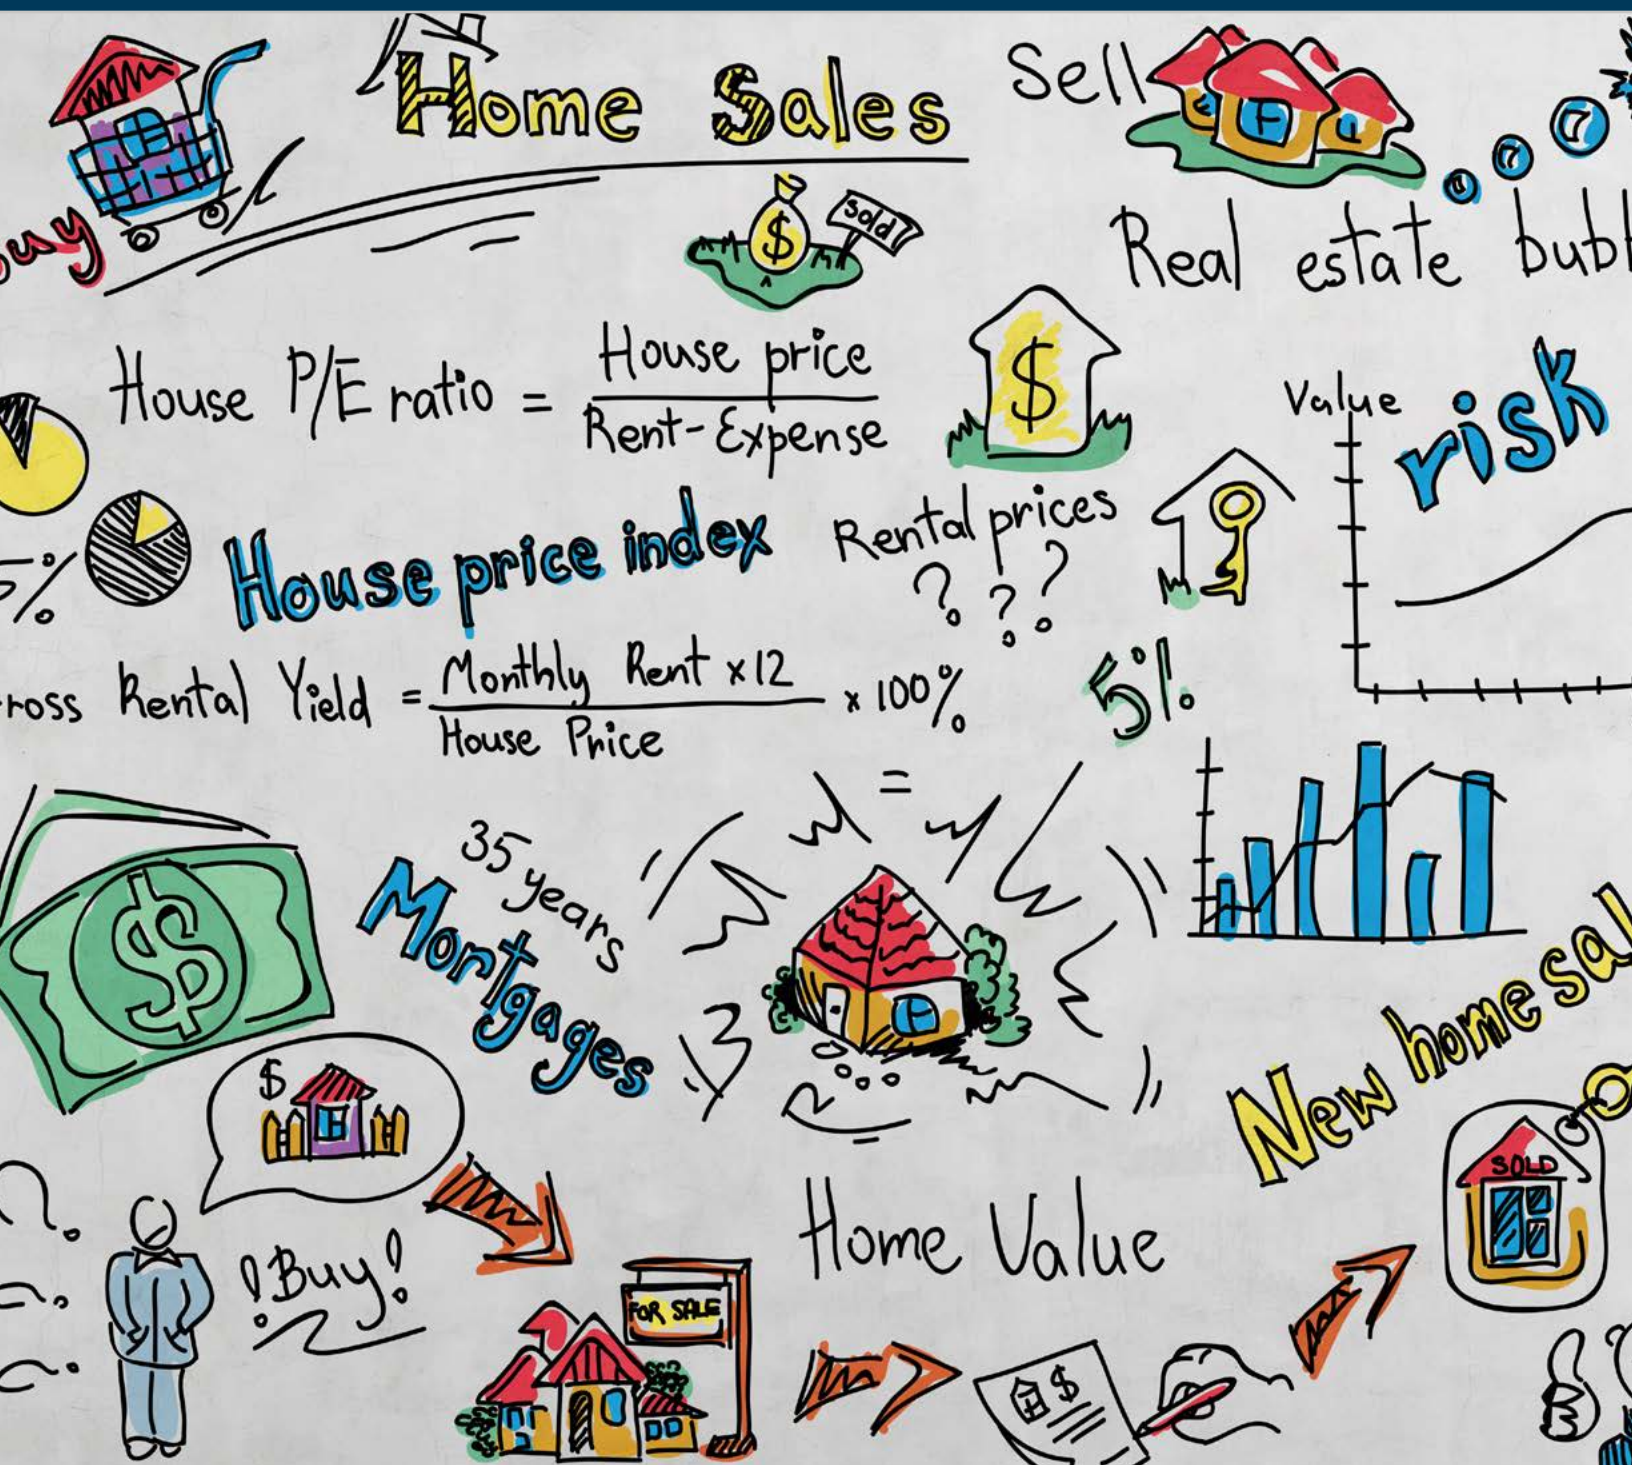 Home Sales
Sell
Buy
sold
$
Real estate bubbl
House P/E ratio = House price
Rent-Expense
$
Value
risk
House price index
Rental prices
? ? ?
5%
ross Rental Yield = Monthly Rent x12 x 100%
House Price
5%
=
$
35 years
Mortgages
New home sal
$
SOLD
!Buy!
Home Value
FOR SALE
$